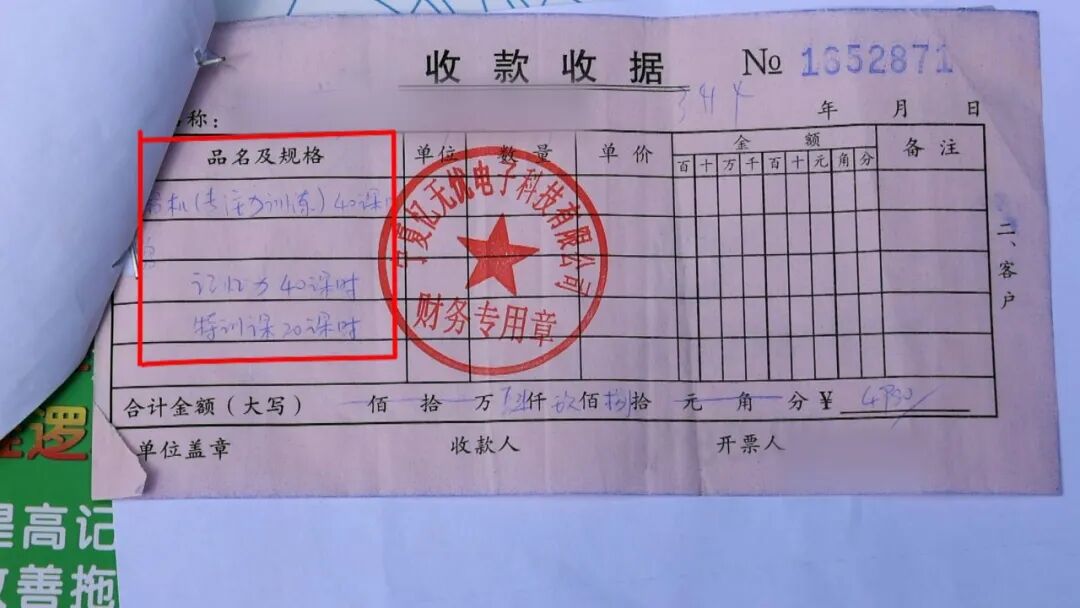 收款收据 № 1652871
称： 年 月 日
品名及规格 单位 数量 单价 金额 备注
百 十 万 千 百 十 元 角 分
机(专注力训练)40课时
记忆力40课时
特训课20课时
宁夏亿无忧电子科技有限公司
财务专用章
二、客户
合计金额（大写） 佰 拾 万 仟 玖佰捌拾 元 角 分 ￥ 4980
单位盖章 收款人 开票人
逻
提高记
改善拖